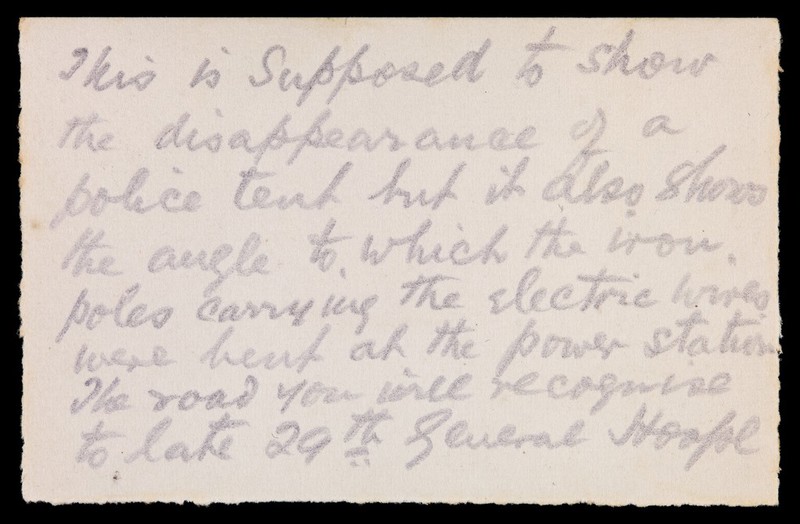 This is Supposed to show
the disappearance of a
police tent but it also shows
the angle to which the iron
poles carrying the electric wires
were bent at the power station
The road you will recognise
to late 29th General Hospl